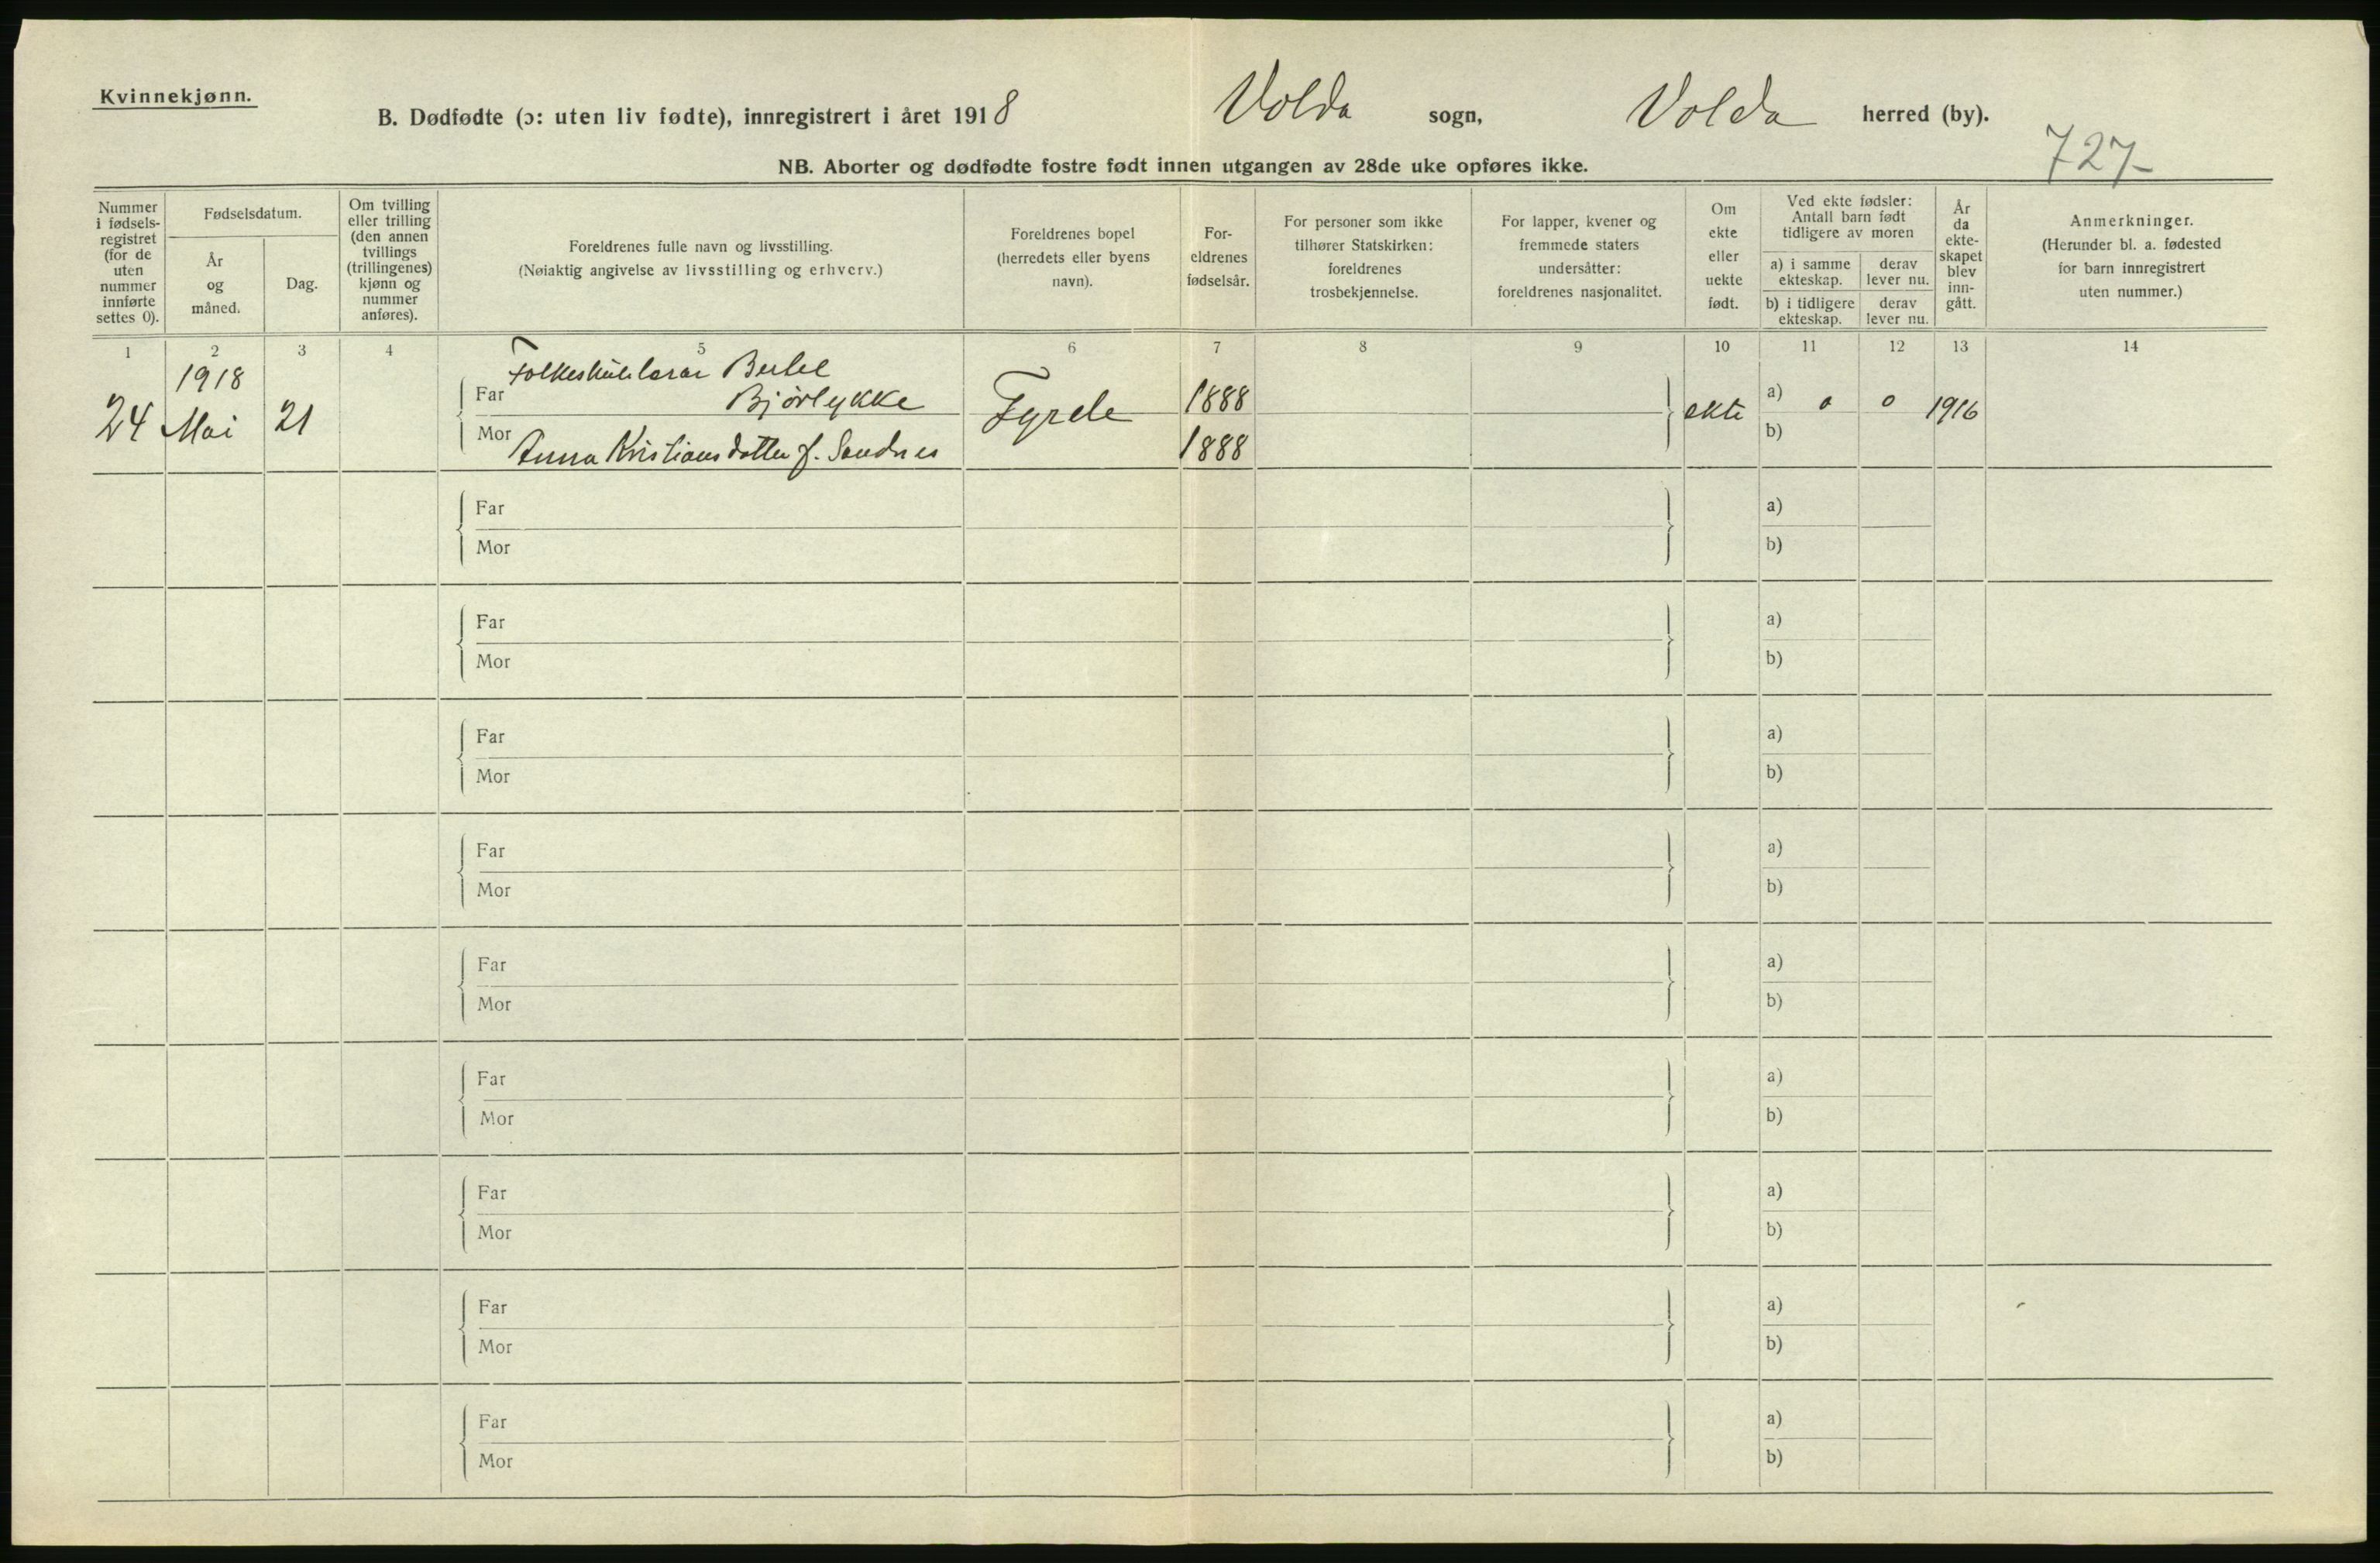 Kvinnekjønn.
B. Dødfødte (ɔ: uten liv fødte), innregistrert i året 1918 Volda sogn, Volda herred (by).
727-
NB. Aborter og dødfødte fostre født innen utgangen av 28de uke opføres ikke.
Nummer i fødsels-registret (for de uten nummer innførte settes 0).
Fødselsdatum.
År og måned.
Dag.
Om tvilling eller trilling (den annen tvillings (trillingenes) kjønn og nummer anføres).
Foreldrenes fulle navn og livsstilling.
(Nøiaktig angivelse av livsstilling og erhverv.)
Foreldrenes bopel (herredets eller byens navn).
For-eldrenes fødselsår.
For personer som ikke tilhører Statskirken: foreldrenes trosbekjennelse.
For lapper, kvener og fremmede staters undersåtter: foreldrenes nasjonalitet.
Om ekte eller uekte født.
Ved ekte fødsler: Antall barn født tidligere av moren
a) i samme ekteskap.
derav lever nu.
b) i tidligere ekteskap.
derav lever nu.
År da ekte-skapet blev inn-gått.
Anmerkninger.
(Herunder bl. a. fødested for barn innregistrert uten nummer.)
1 2 3 4 5 6 7 8 9 10 11 12 13 14
1918
24 Mai 21
Far Folkeskulelærar
Bjørlykke
1888
ekte a) 0 0 1916
Mor Anna Kristiansdotter f. Sandnes
1888
b)
Far a)
Mor b)
Far a)
Mor b)
Far a)
Mor b)
Far a)
Mor b)
Far a)
Mor b)
Far a)
Mor b)
Far a)
Mor b)
Far a)
Mor b)
Far a)
Mor b)